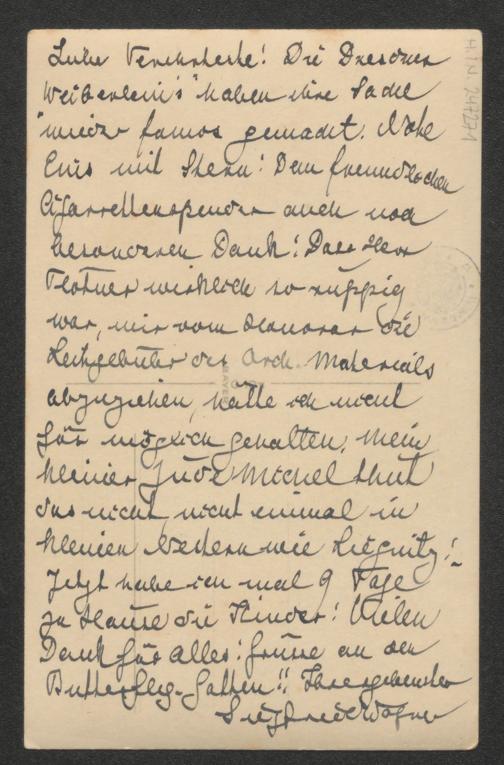 Liebe Verehrteste! Die Dresdner
"Weiberleins" haben ihre Sache
wieder famos gemacht. Note
Eins mit Stern! Dem freundlichen
Cigarrettenspender auch noch
besonderen Dank! Dass Herr
Plötner wirklich so ruppig
war, mir vom Honorar die
Leihgebühr des Orch. Materials
abzuziehen, hätte ich nicht
für möglich gehalten. Mein
kleiner Jude Michel thut
das nicht, nicht einmal in
kleinen Nestern wie Liegnitz!
Jetzt habe ich mal 9 Tage
zu Hause die Kinder! Vielen
Dank für Alles! Grüsse an den
Butterfly-Gatten!! Ihr ergebenster
Siegfried Wagner
H.I.N. 247271